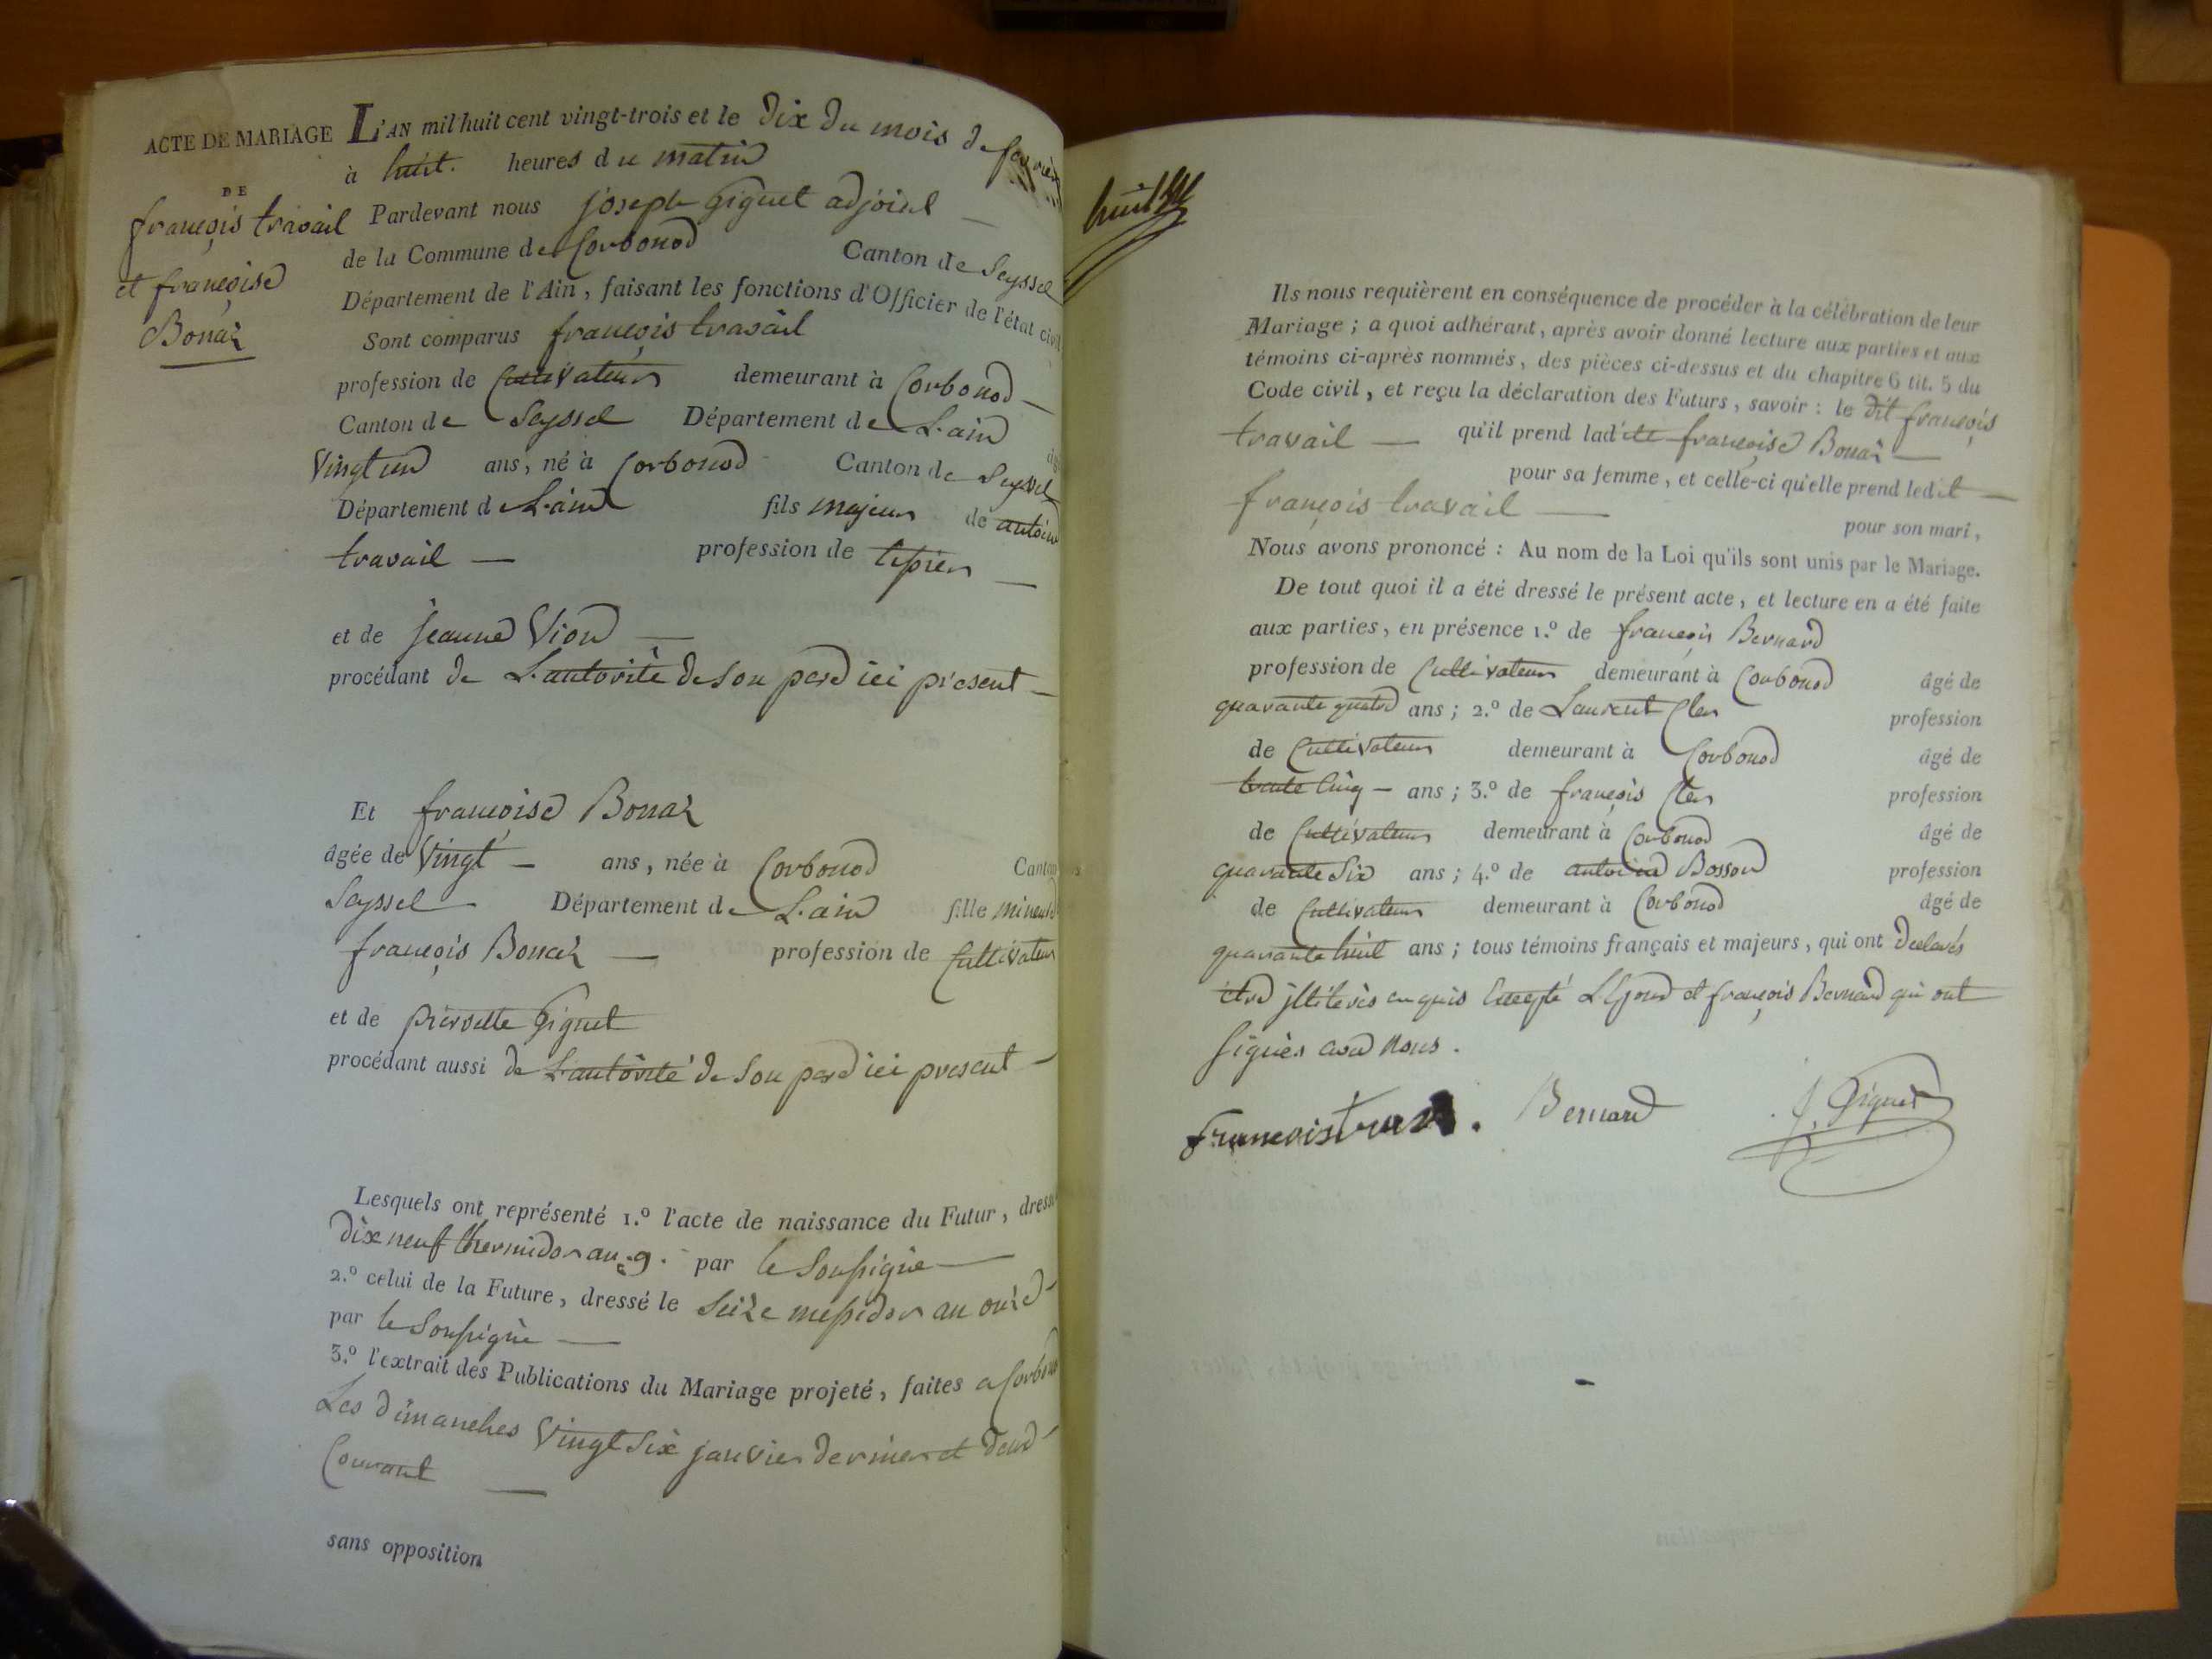 ACTE DE MARIAGE
DE
françois travail
et françoise
Bonaz
L'AN mil huit cent vingt-trois et le dix du mois de fevrier
à huit. heures du matin
Pardevant nous joseph Giguet adjoint
de la Commune de Corbonod Canton de Seyssel
Département de l'Ain, faisant les fonctions d'Officier de l'état civil
Sont comparus françois travail
profession de Cultivateur demeurant à Corbonod
Canton de Seyssel Département de L'ain
Vingt un ans, né à Corbonod Canton de Seyssel
Département de L'ain fils majeur de antoine
travail — profession de
et de jeanne Vion —
procédant de L'autorité de son pere ici présent —
Et françoise Bonaz
âgée de Vingt — ans, née à Corbonod Canton
Seyssel Département de L'ain fille mineure
françois Bonaz — profession de Cultivateur
et de pierrette Giguet
procédant aussi de L'autorité de son pere ici present —
Lesquels ont représenté 1.º l'acte de naissance du Futur, dressé
dix neuf thermidor an 9. par le Soussigné —
2.º celui de la Future, dressé le Seize messidor an onze
par le Soussigné —
3.º l'extrait des Publications du Mariage projeté, faites a Corbonod
Les dimanches Vingt Six janvier dernier et deux
Courant —
sans opposition
huit
Ils nous requièrent en conséquence de procéder à la célébration de leur
Mariage ; a quoi adhérant, après avoir donné lecture aux parties et aux
témoins ci-après nommés, des pièces ci-dessus et du chapitre 6 tit. 5 du
Code civil, et reçu la déclaration des Futurs, savoir : le dit françois
travail — qu'il prend ladite françoise Bonaz —
pour sa femme, et celle-ci qu'elle prend ledit —
françois travail —
pour son mari,
Nous avons prononcé : Au nom de la Loi qu'ils sont unis par le Mariage.
De tout quoi il a été dressé le présent acte, et lecture en a été faite
aux parties, en présence 1.º de françois Bernard
profession de Cultivateur demeurant à Corbonod âgé de
quarante quatre ans ; 2.º de Laurent Cler profession
de Cultivateur demeurant à Corbonod âgé de
trente Cinq — ans ; 3.º de françois Cler profession
de Cultivateur demeurant à Corbonod âgé de
quarante Six ans ; 4.º de antoine Bosson profession
de Cultivateur demeurant à Corbonod âgé de
quarante huit ans ; tous témoins français et majeurs, qui ont declarés
être jlliterés enquis Excepté L'Epoux et françois Bernard qui ont
Signés avec nous.
francois Bernard J. Giguet